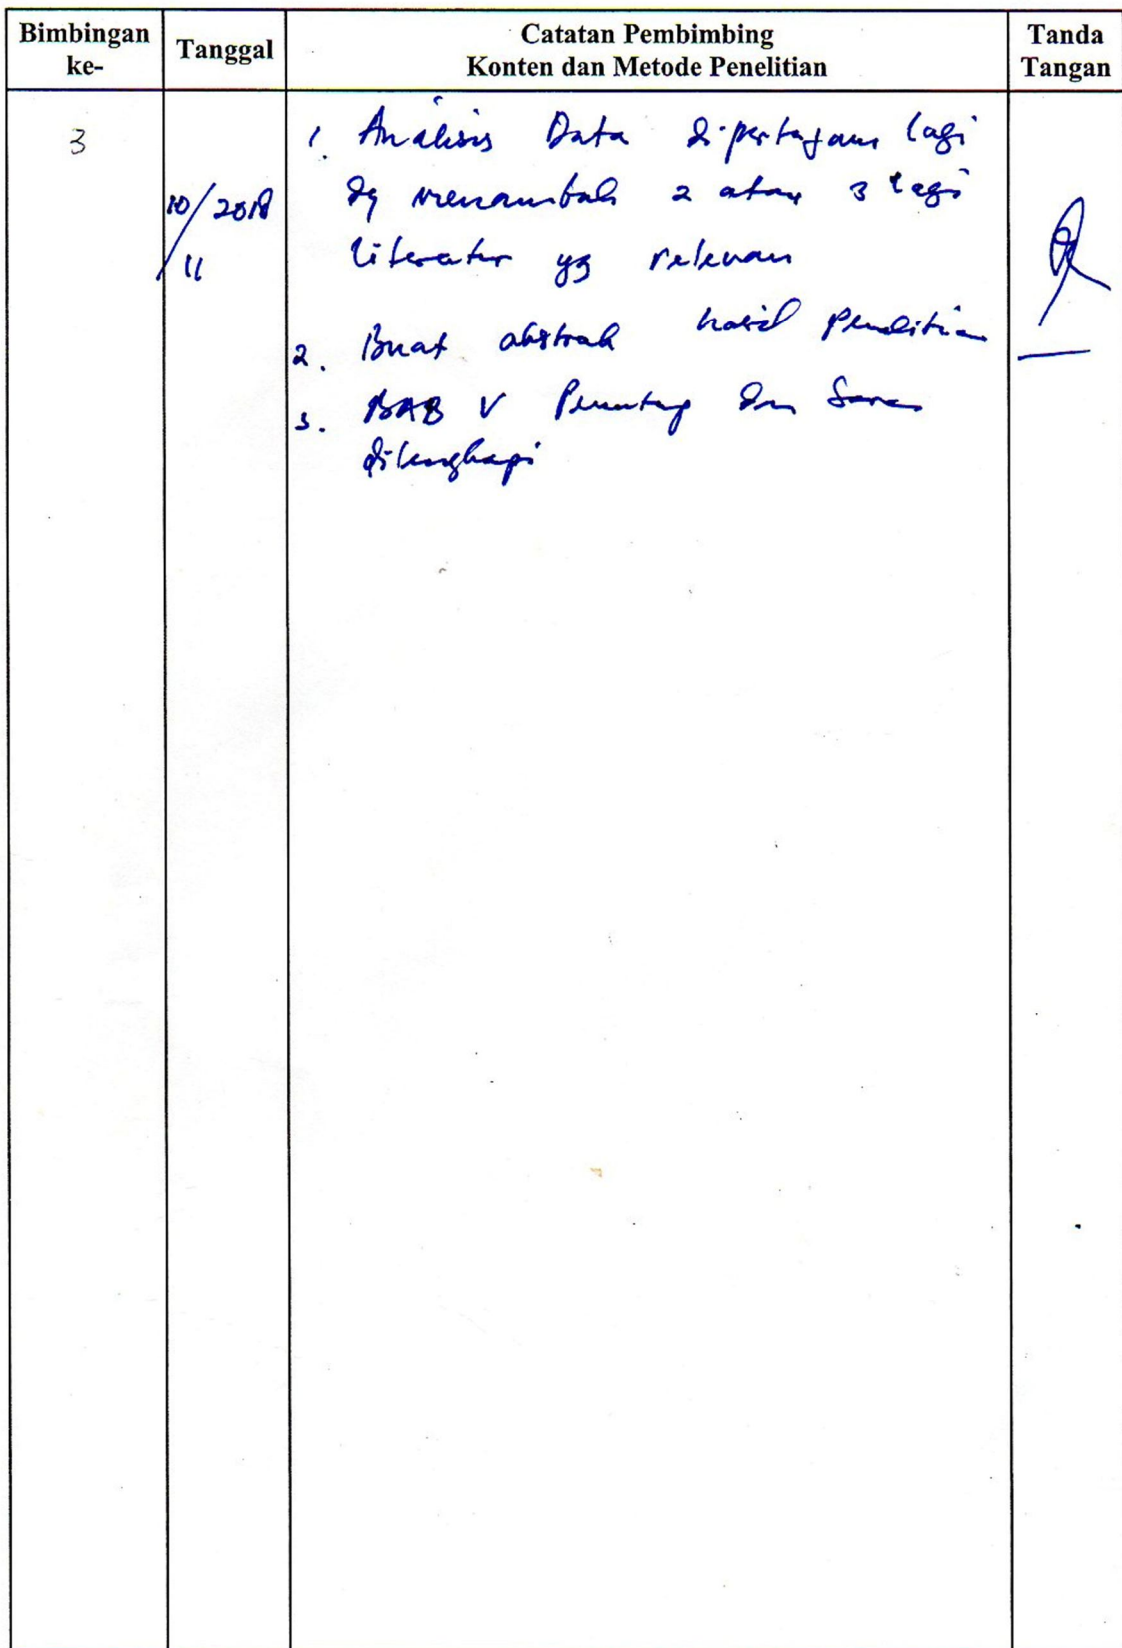 Bimbingan ke-
Tanggal
Catatan Pembimbing
Konten dan Metode Penelitian
Tanda Tangan
3
10/2018
11
1. Analisis Data dipertajam lagi
dg menambah 2 atau 3 lagi
literatur yg relevan
2. Buat abstrak hasil penelitian
3. BAB V Penutup dan Saran
dilengkapi